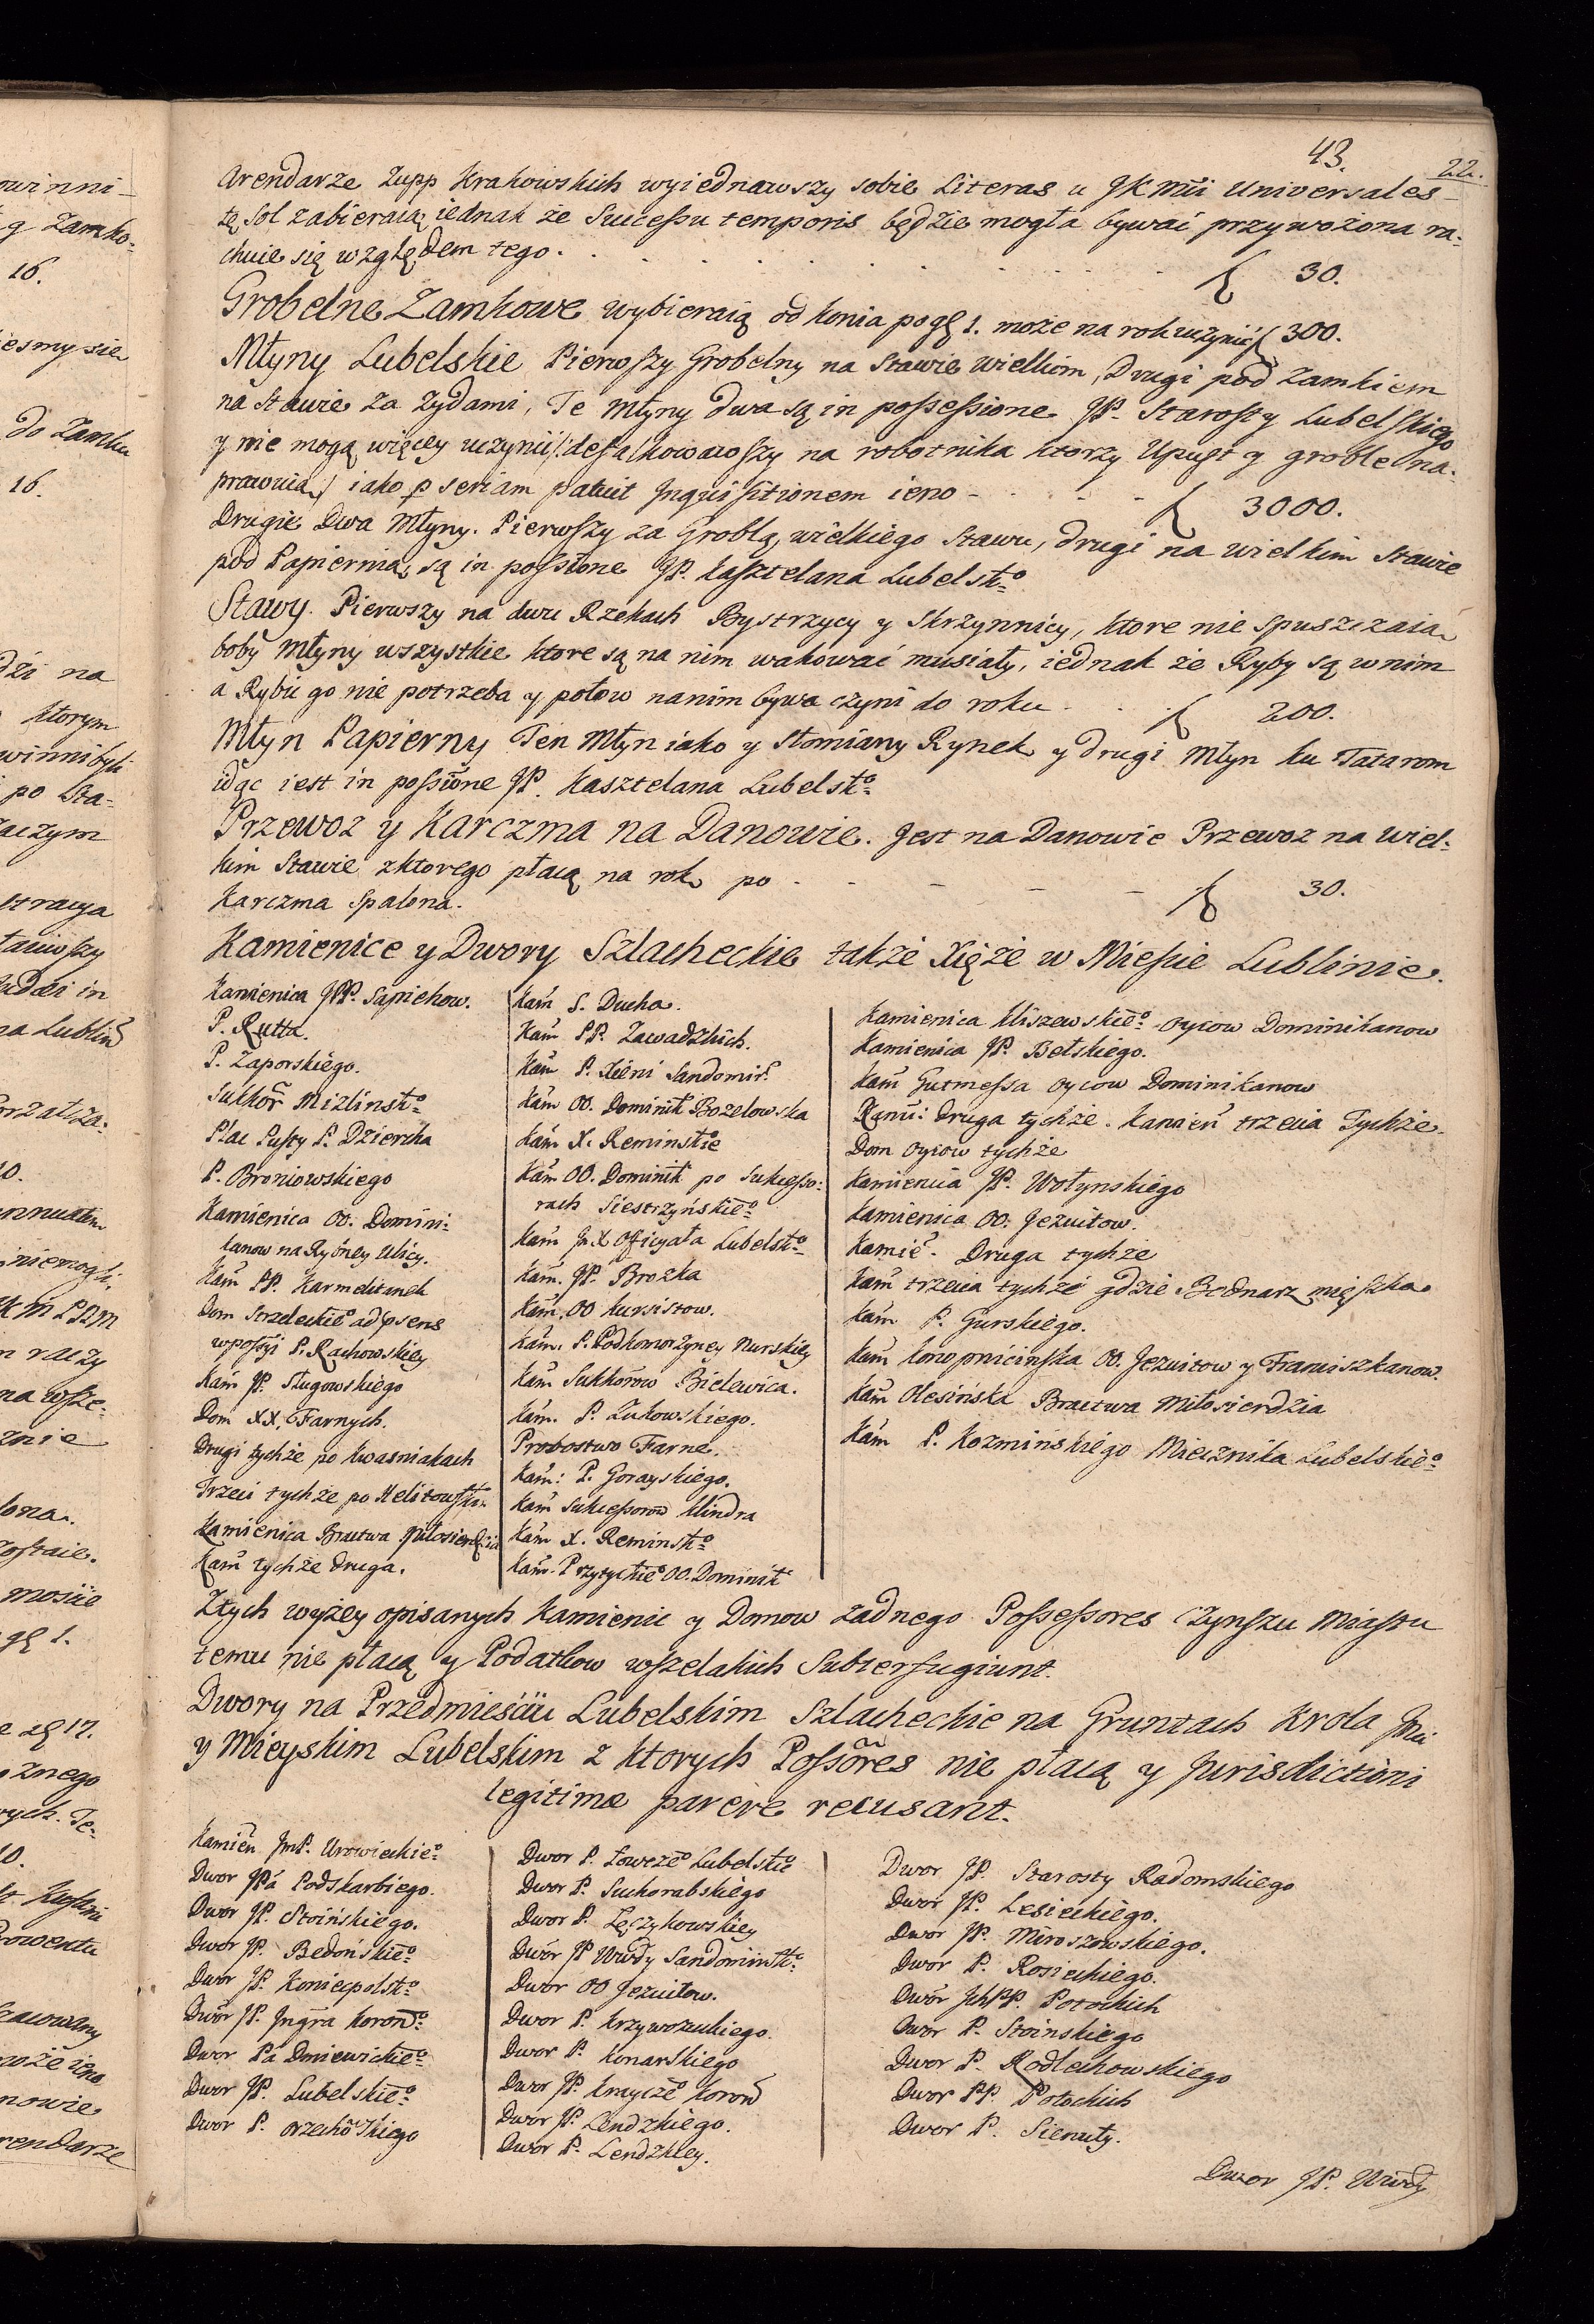 43.
22.
Arendarze Zupp Krakowskich wyiednawszy sobie Literas u JKMći Universales
tę sol zabieraią, iednak że Sucessu temporis będzie mogła bywać przywożona ra-
chuie się względem tego . . . . . . . . . 30.
Grobelne Zamkowe wybieraią od konia po gę 1. może na rok uczynić 300.
Młyny Lubelskie Pierwszy Grobelny na Stawie wielkim, Drugi pod Zamkiem
na Stawie za Zydami, Te Młyny dwa są in possessione JP. Starosty Lubelskiego
y nie mogą więcey uczynić /: defalkowawszy na robotnika ktorzy Upust y groble na-
prawuią :/ iako p seriam patuit Inquisitionem ieno - - - 3000.
Drugie Dwa Młyny. Pierwszy za Groblą wielkiego Stawu, drugi na wielkim Stawie
pod Papiernią, są in possione JP. Kasztelana Lubelsko
Stawy. Pierwszy na dwu Rzekach Bystrzycy y Skrzynnicy, ktore nie spuszczaią
boby Młyny wszystkie ktore są na nim wakować musiały, iednak że Ryby są w nim
a Rybić go nie potrzeba y połow na nim bywa czyni do roku . . . 200.
Młyn Papierny Ten Młyn iako y Słomiany Rynek y drugi Młyn ku Tatarom
idąc iest in possione JP. Kasztelana Lubelsko
Przewoz y Karczma na Danowie. Jest na Danowie Przewoz na Wiel-
kim Stawie z ktorego płacą na rok po - - - - - 30.
Karczma Spalona.
Kamienice y Dwory Szlacheckie także Xięże w Mieście Lublinie.
Kamienica JPP. Sapiehow.
P. Rutta.
P. Zaporskiego.
Sukkor Mizlinsko
Plac Pusty P. Dzierzka
P. Broniowskiego
Kamienica OO. Domini-
kanow na Rybney Ulicy.
Kam PP. Karmelitanek
Dom Strzeleckie ad psens
w possyi P. Rachowskiey
Kam JP. Sługowskiego
Dom XX. Farnych.
Drugi tychże po Kwasniakach
Trzeci tychże po
Kamienica Bractwa Miłosierdzia
Kam tychże druga.
Kam S. Ducha.
Kam PP. Zawadzkich.
Kam P. Xieni Sandomir.
Kam OO. Dominik Bozelowska
Kam X. Reminskie
Kam OO. Dominik po Sukcesso-
rach Siestrzyńskieo
Kam Jn X Oficyała Lubelsko
Kam. JP. Brozka
Kam. OO Kursistow.
Kam. P. Podkomorzyney Nurskiey
Kam Sukkorow Bielewica.
Kam. P. Zukowskiego.
Probostwo Farne.
Kam: P. Gorayskiego.
Kam Sukcessorow Klindra
Kam X. Reminsko
Kam. Przytyckieo OO. Dominik
Kamienica Kliszewskieo Oycow Dominikanow
Kamienica JP. Bełskiego.
Kam Gutmessa Oycow Dominikanow
Kami: druga tychże. Kamien trzecia Tychże.
Dom Oycow tychże
Kamienica JP. Wołynskiego
Kamienica OO. Jezuitow.
Kamie. Druga tychże
Kam trzecia tychże gdzie Bednarz mięszka.
Kam P. Gurskiego.
Kam Konopnicińska OO. Jezuitow y Franciszkanow.
Kam Olesińska Bractwa Miłosierdzia
Kam P. Kozmińskiego Miecznika Lubelskieo
Z tych wyżey opisanych Kamienic y Domow żadnego Possessores Czynszu Miastu
temu nie płacą y Podatkow wszelakich Subterfugiunt.
Dwory na Przedmieściu Lubelskim Szlacheckie na Gruntach Krola Jmći
y Mieyskim Lubelskim z ktorych Possores nie płacą y Jurisdictioni
legitimæ parere recusant.
Kamien JmP. Urowieckieo
Dwor JPa Podskarbiego.
Dwor JP. Stoińskiego.
Dwor JP. Bedońskieo
Dwor JP. Koniecpolsko
Dwor JP. Jngra Korono
Dwor Pa Dmiewickieo
Dwor JP. Lubelskieo
Dwor P. Orzechowskiego
Dwor P. Łowcżeo Lubelskieo
Dwor P. Suchorabskiego
Dwor P. Lęczykowskiey
Dwor JP Wwdy Sandomirsko
Dwor OO Jezuitow.
Dwor P. Krzyworuckiego.
Dwor P. Konarskiego
Dwor JP. Krayczeo Koron
Dwor JP. Lendzkiego.
Dwor P. Lendzkiey.
Dwor JP. Starosty Radomskiego
Dwor JP. Lesieckiego.
Dwor JP. Miroszowskiego.
Dwor P. Rosieckiego.
Dwor Jch PP. Potockich
Dwor P. Stoinskiego
Dwor P. Rodlechowskiego
Dwor PP. Potockich
Dwor P. Sienuty.
Dwor JP. Wwdy